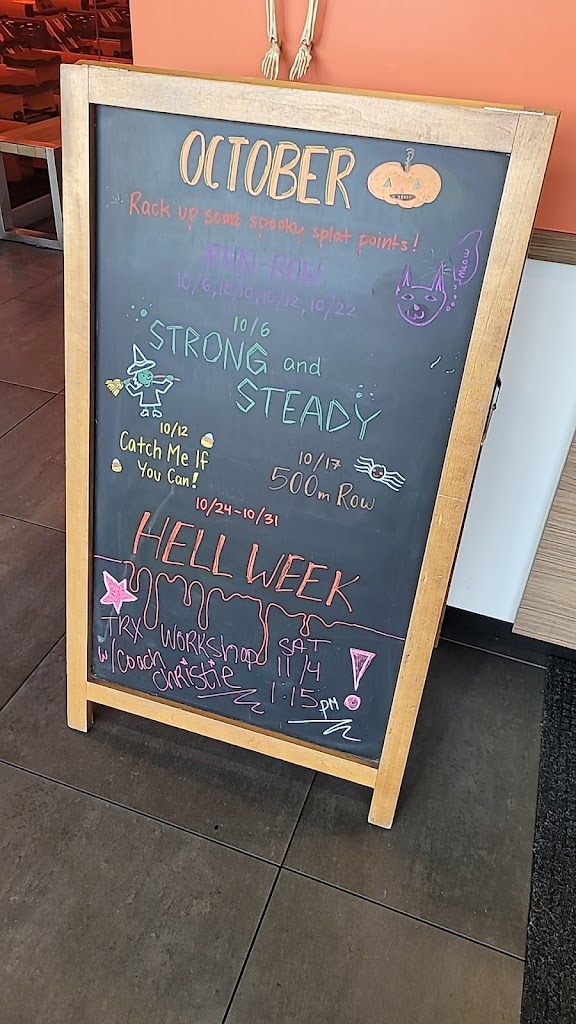 OCTOBER
Rack up some spooky splat points!
RUN-ROW
10/6, 10/10, 10/12, 10/22
MEOW
10/6
STRONG and
STEADY
10/12
Catch Me If
You Can!
10/17
500m Row
10/24-10/31
HELL WEEK
TRX WORKSHOP
w/ Coach
Christie
SAT
11/4
1:15 PM